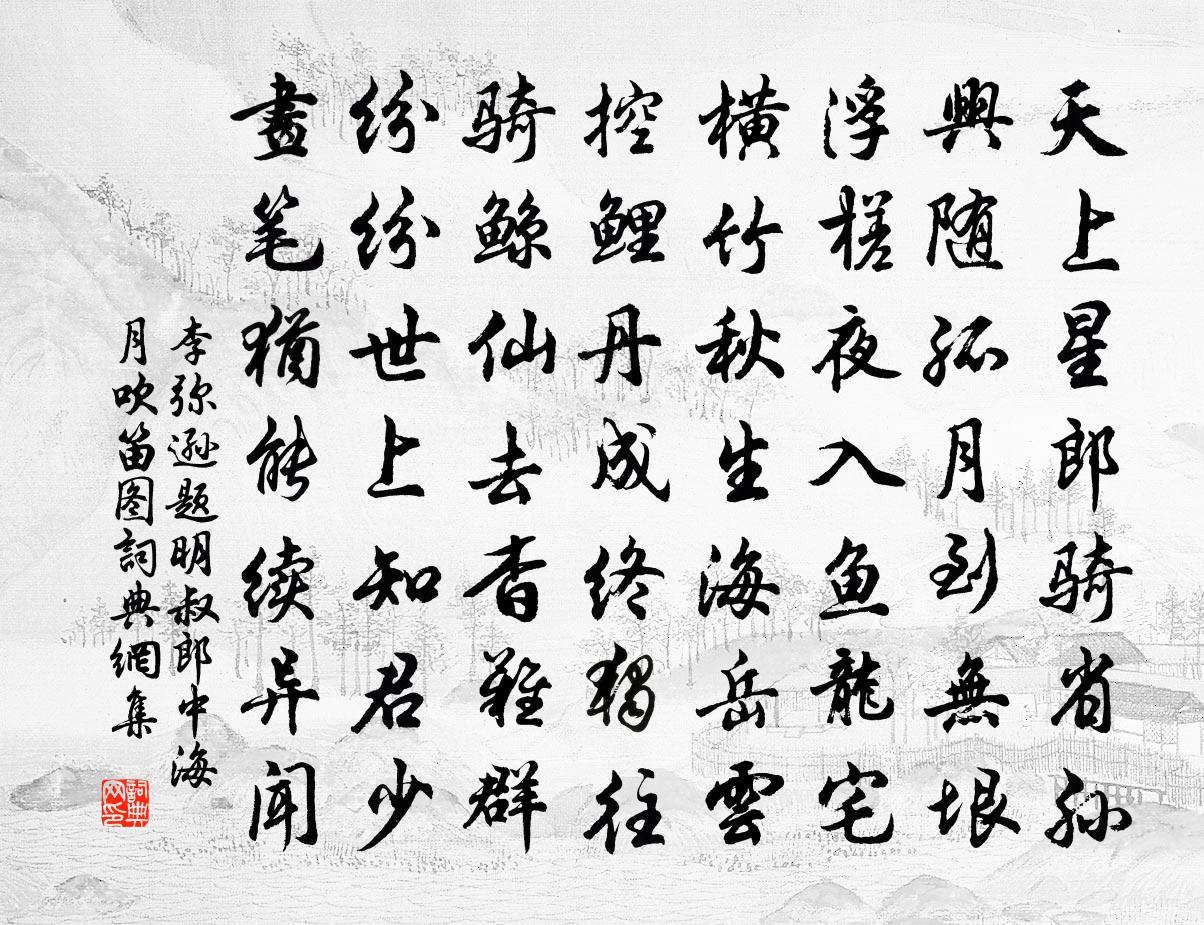 天上星郎骑省孙
興随孤月到無垠
浮槎夜入鱼龍宅
横竹秋生海岳雲
控鲤丹成终獨往
骑鲸仙去杳難群
纷纷世上知君少
畫笔猶能续异闻
李弥逊题明叔郎中海
月吹笛图詞典網集
詞典
网印